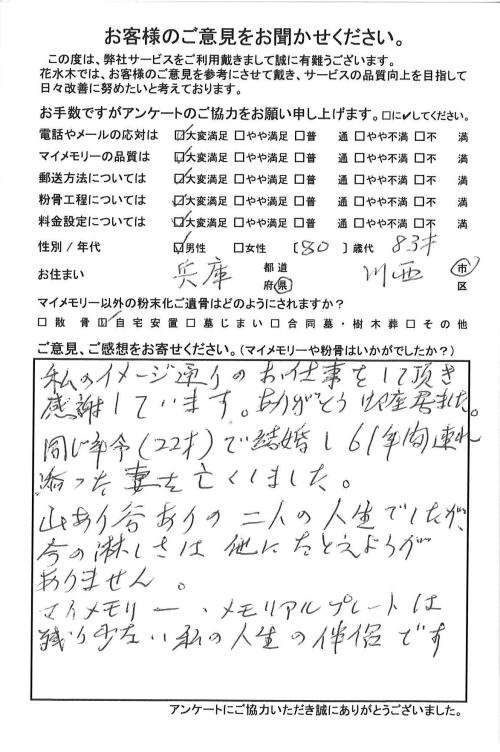 お客様のご意見をお聞かせください。
この度は、弊社サービスをご利用戴きまして誠に有難うございます。
花水木では、お客様のご意見を参考にさせて戴き、サービスの品質向上を目指して
日々改善に努めたいと存じます。
お手数ですがアンケートのご協力をお願い申し上げます。□に✔してください。
電話やメールの応対は ☑大変満足 □やや満足 □普 通 □やや不満 □不 満
マイメモリーの品質は ☑大変満足 □やや満足 □普 通 □やや不満 □不 満
郵送方法については ☑大変満足 □やや満足 □普 通 □やや不満 □不 満
粉骨工程については ☑大変満足 □やや満足 □普 通 □やや不満 □不 満
料金設定については ☑大変満足 □やや満足 □普 通 □やや不満 □不 満
性別 / 年代 ☑男性 □女性 〔80〕歳代 83才
お住まい 兵庫 都道府県 川西 市区
マイメモリー以外の粉末化ご遺骨はどのようにされますか?
□散骨 ☑自宅安置 □墓じまい □合同墓・樹木葬 □その他
ご意見、ご感想をお寄せください。(マイメモリーや粉骨はいかがでしたか?)
私のイメージ通りのお仕事をして頂き
感謝しています。ありがとう御座居ました。
同じ年令(22才)で結婚し61年間連れ
添った妻を亡くしました。
山あり谷ありの二人の人生でしたが、
今の淋しさは他にたとえようが
ありません。
マイメモリー、メモリアルプレートは
残り少ない私の人生の伴侶です
アンケートにご協力いただき誠にありがとうございました。